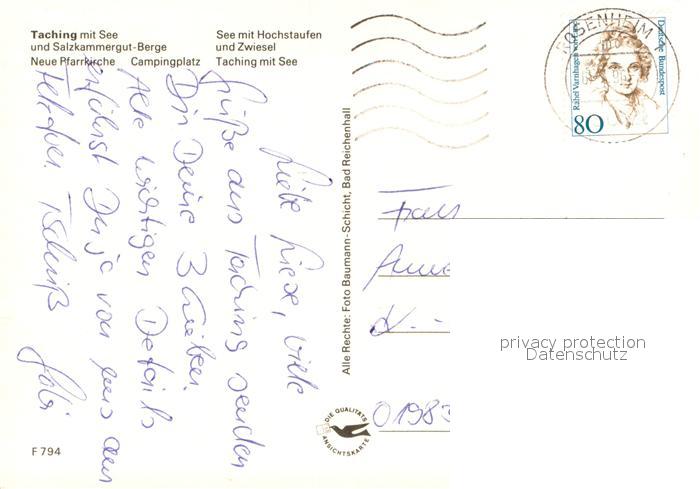 Taching mit See
und Salzkammergut-Berge
Neue Pfarrkirche Campingplatz
See mit Hochstaufen
und Zwiesel
Taching mit See
Liebe Liese, viele
Grüße aus Taching senden
Dir Deine 3 Lieben.
Alle wichtigen Details
erfährst Du ja von uns am
Telefon. Tschüß
Gabi
Alle Rechte: Foto Baumann-Schicht, Bad Reichenhall
ROSENHEIM 1
Rahel Varnhagen von Ense
Deutsche Bundespost
80
Frau
0 1983
privacy protection
Datenschutz
DIE QUALITÄTS
ANSICHTSKARTE
F 794